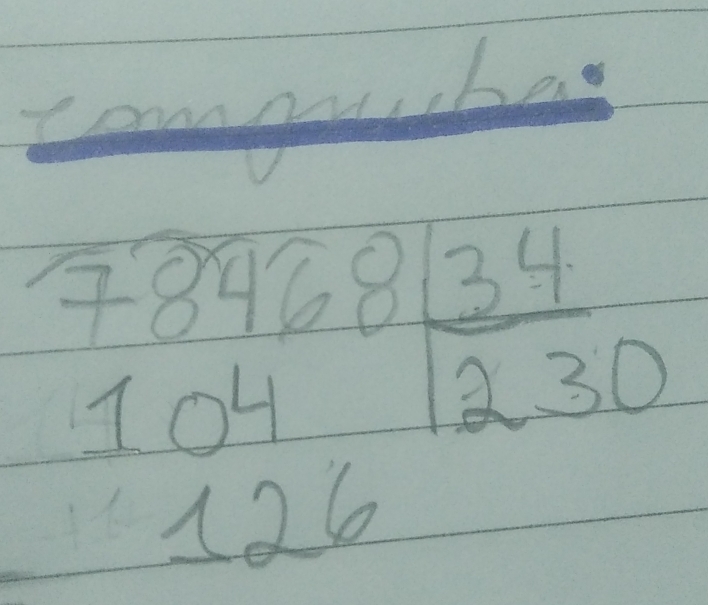 78468 34
104 230
126